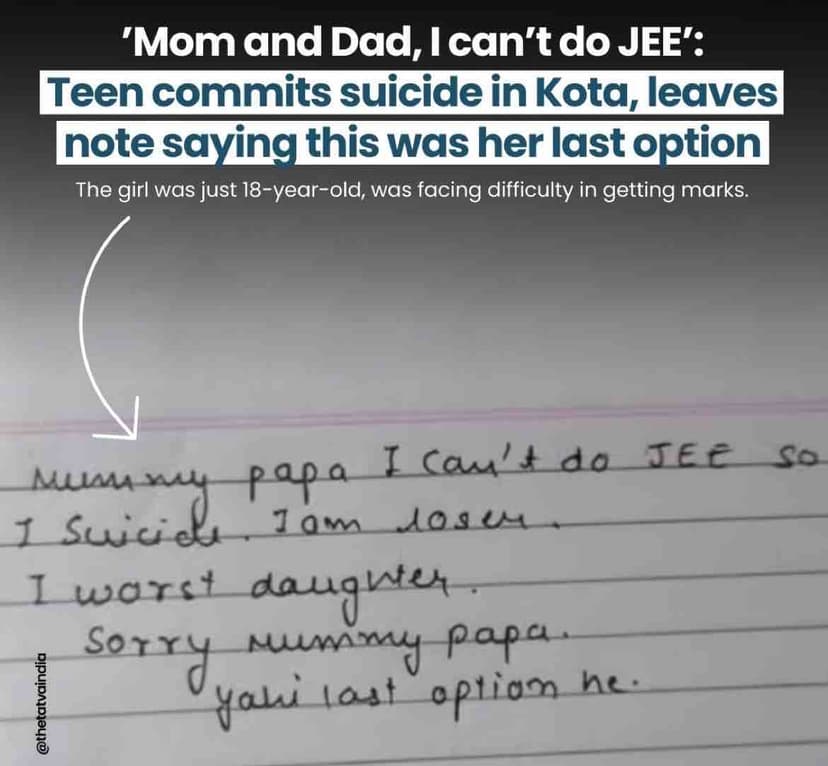 ’Mom and Dad, I can’t do JEE’:
Teen commits suicide in Kota, leaves
note saying this was her last option
The girl was just 18-year-old, was facing difficulty in getting marks.
Mummy papa I can't do JEE so
I Suicide. I am loser.
I worst daughter.
Sorry mummy papa.
yahi last option he.
@thetatvaindia